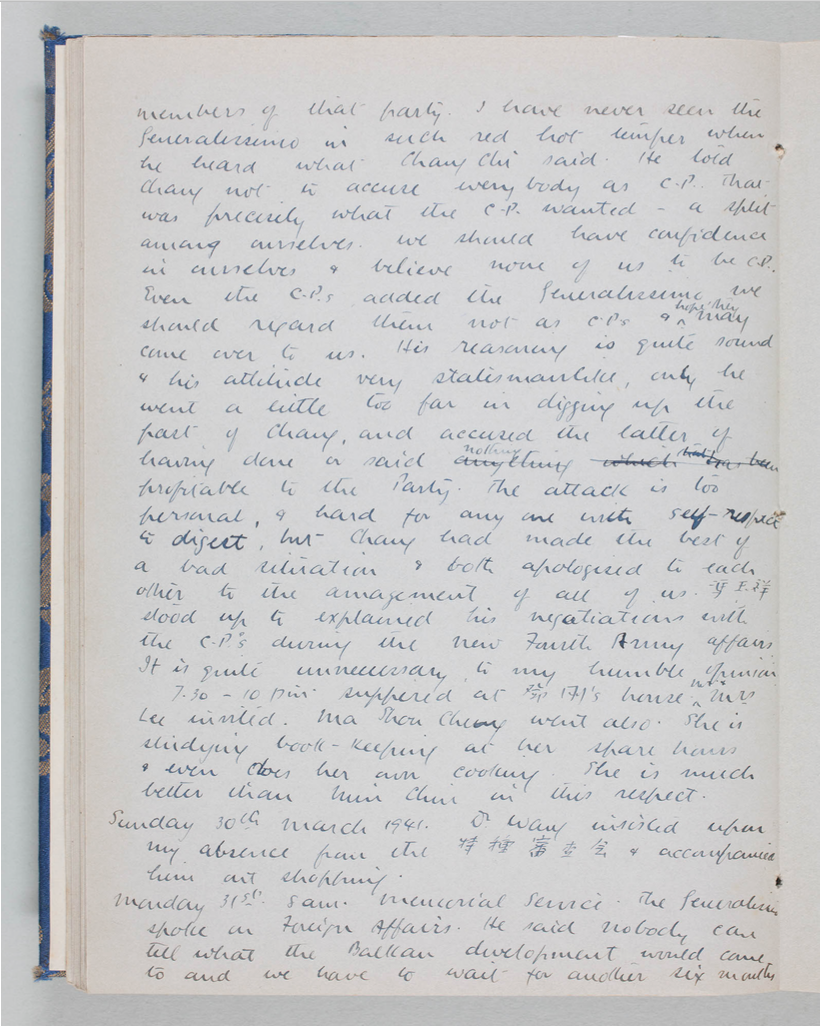 members of that party. I have never seen the
Generalissimo in such red hot temper when
he heard what Chang Chi said. He told
Chang not to accuse everybody as C.P.. That
was precisely what the C.P. wanted - a split
among ourselves. We should have confidence
in ourselves & believe none of us to be C.P..
Even the C.P.s added the Generalissimo we
should regard them not as C.P.s & hope they may
come over to us. His reasoning is quite sound
& his attitude very statesmanlike, only he
went a little too far in digging up the
past of Chang, and accused the latter of
having done or said anything nothing which had has been
profitable to the Party. The attack is too
personal, & hard for any one with self-respect
to digest, but Chang had made the best of
a bad situation & both apologised to each
other to the amagement of all of us.
stood up to explained his negatiations with
the C.P.s during the new Fourth Army affairs
It is quite unnecessary, to my humble opinion
7.30 - 10 p.m. suppered at house. Mrs
Lee invited. Ma Shou Cheng went also. She is
studying book-keeping at her spare hours
& even does her own cooking. She is much
better than Min Chin in this respect.
Sunday 30th March 1941. Dr Wang insisted upon
my absence from the 特種審査会 & accompanied
him out shopping.
Monday 31st. 8 am. Memorial Service. The Generalissimo
spoke on Foreign Affairs. He said nobody can
tell what the Balkan development would come
to and we have to wait for another six months